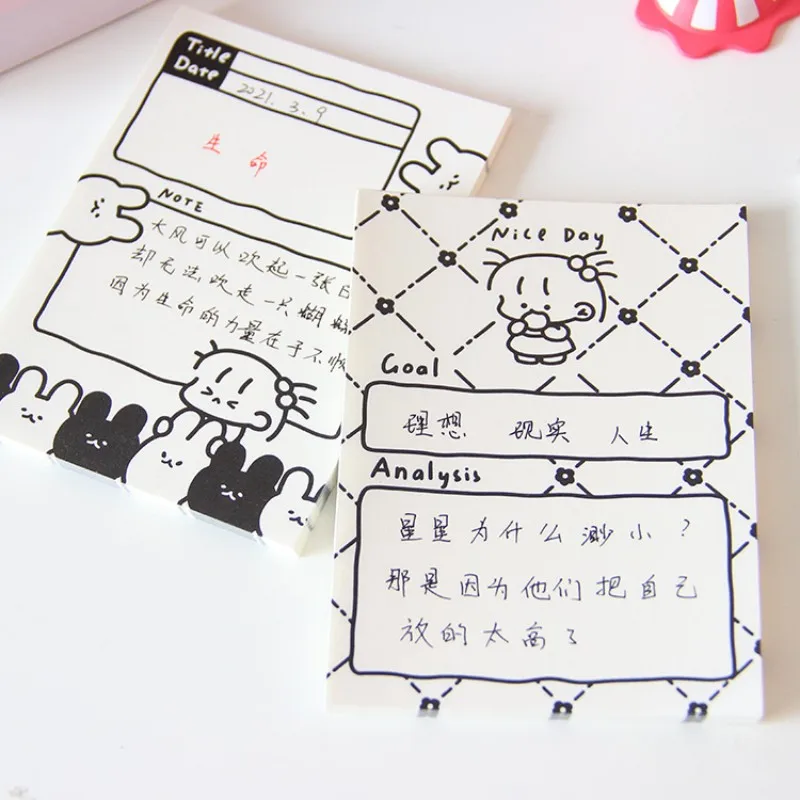 Title
Date
2021. 3. 9
生 命
NOTE
大风可以吹起一张
却无法吹走一只蝴
因为生命的力量在于不
Nice Day
Goal
理想 现实 人生
Analysis
星星为什么渺小?
那是因为他们把自己
放的太高了